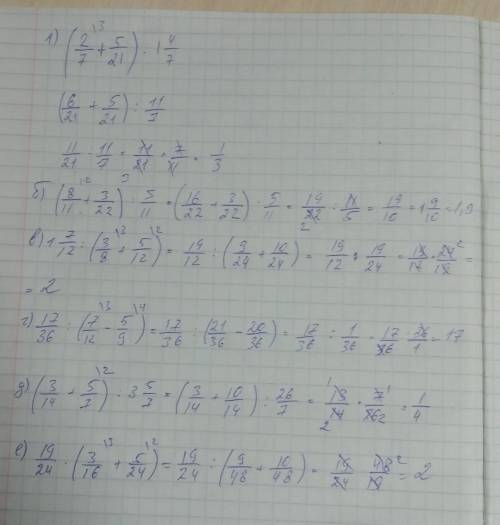 1) (2/7 \3 + 5/21) : 1 4/7
(6/21 + 5/21) : 11/7
11/21 : 11/7 = 11/21 · 7/11 = 1/3
б) (8/11 \2 + 3/22) : 5/11 = (16/22 + 3/22) : 5/11 = 19/22 · 11/5 = 19/10 = 1 9/10 = 1,9
в) 1 7/12 : (3/8 \3 + 5/12 \2) = 19/12 : (9/24 + 10/24) = 19/12 : 19/24 = 19/12 · 24/19 =
= 2
г) 17/36 : (7/12 \3 - 5/9 \4) = 17/36 : (21/36 - 20/36) = 17/36 : 1/36 = 17/36 · 36/1 = 17
д) (3/14 + 5/7 \2) : 3 5/7 = (3/14 + 10/14) : 26/7 = 13/14 · 7/26 = 1/4
е) 19/24 : (3/16 \3 + 5/24 \2) = 19/24 : (9/48 + 10/48) = 19/24 · 48/19 = 2